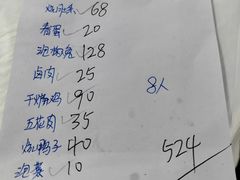 68
蛋 20
泡椒兔 128
卤肉 25
鸡 90
8人
五花肉 35
烧鸭子 40
524
泡菜 10